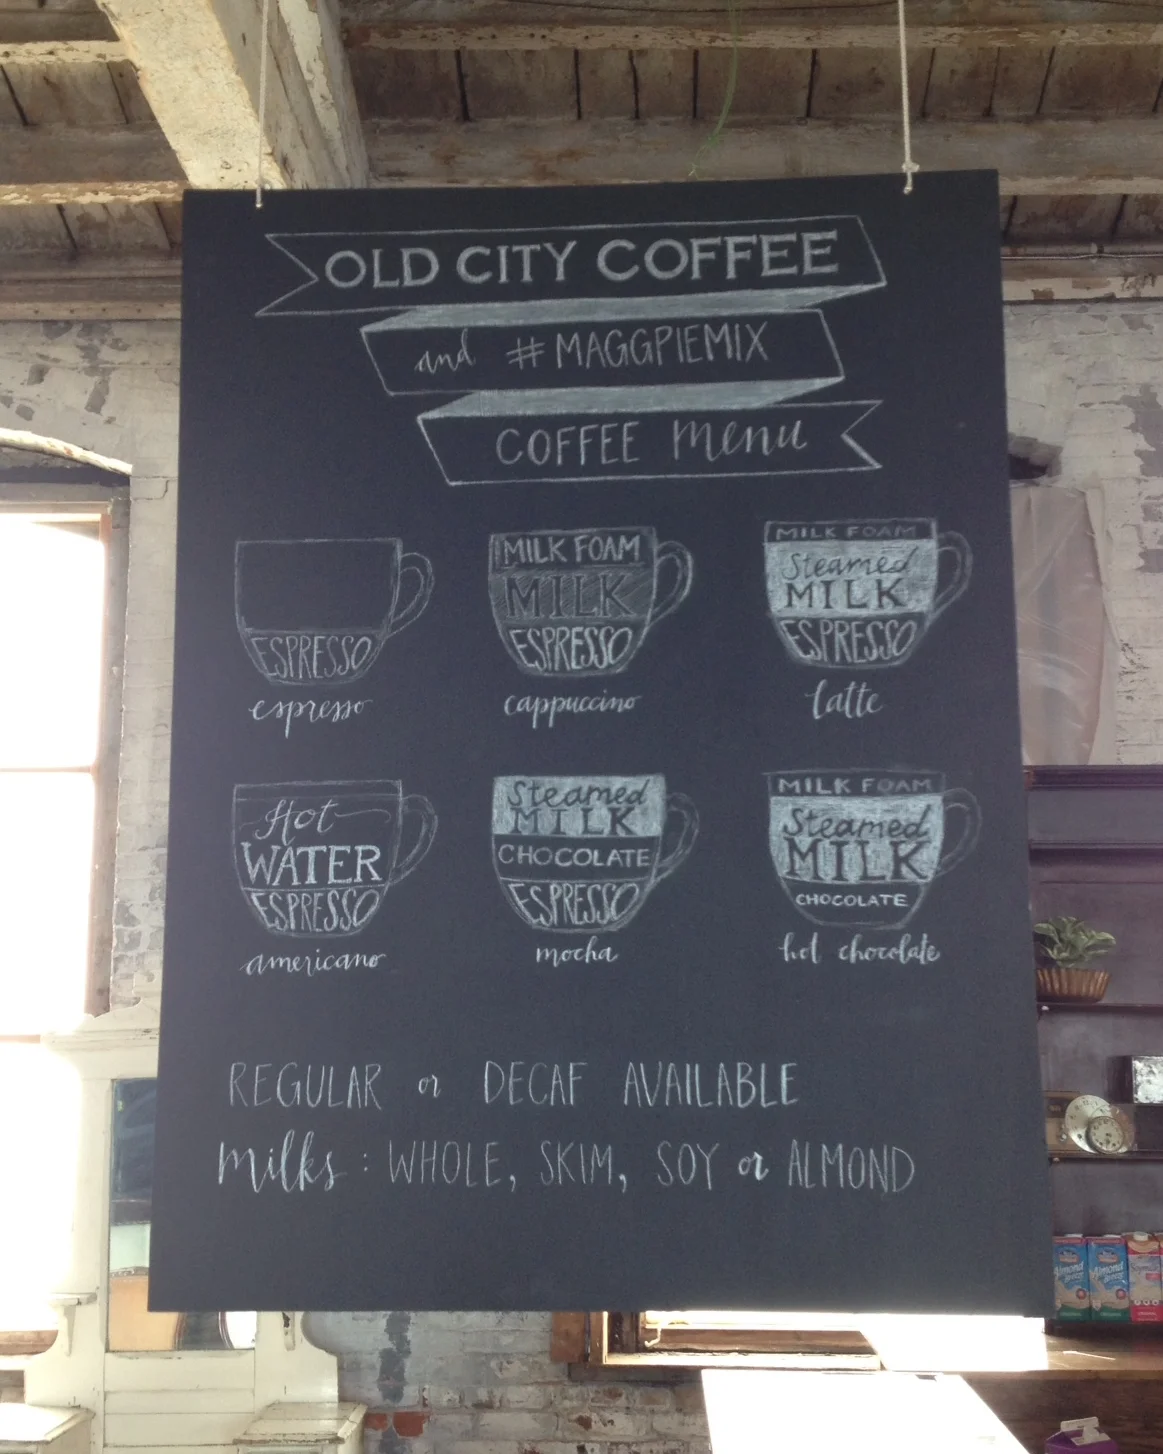 OLD CITY COFFEE
and #MAGGPIEMIX
COFFEE menu
ESPRESSO
espresso
MILK FOAM
MILK
ESPRESSO
cappuccino
MILK FOAM
Steamed
MILK
ESPRESSO
latte
Hot
WATER
ESPRESSO
americano
Steamed
MILK
CHOCOLATE
ESPRESSO
mocha
MILK FOAM
Steamed
MILK
CHOCOLATE
hot chocolate
REGULAR or DECAF AVAILABLE
milks: WHOLE, SKIM, SOY or ALMOND
Almond
Breeze
Almond
Breeze